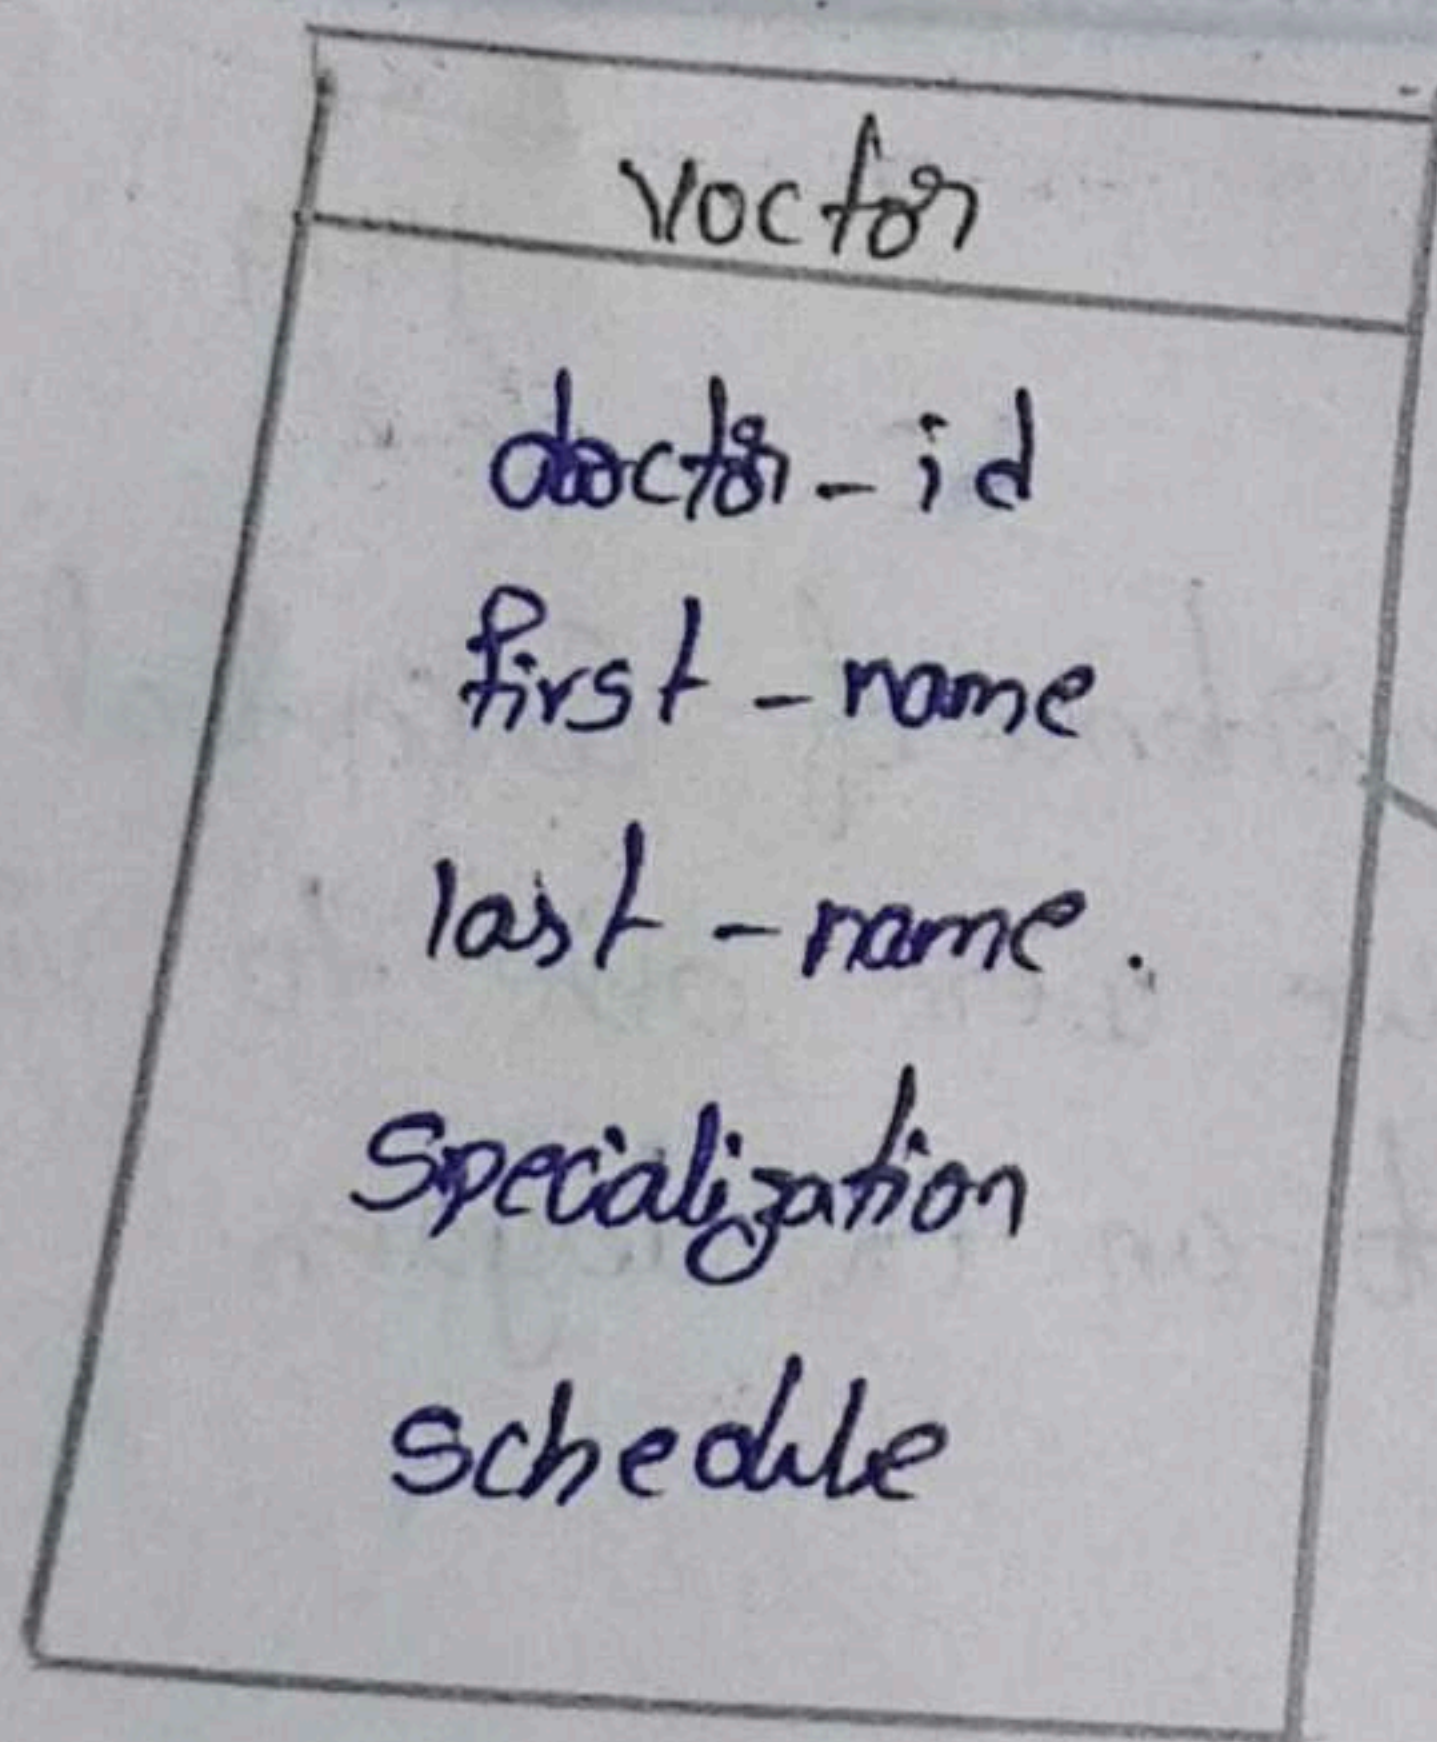 Voctor
doctor-id
first-name
last-name.
Specialization
schedule